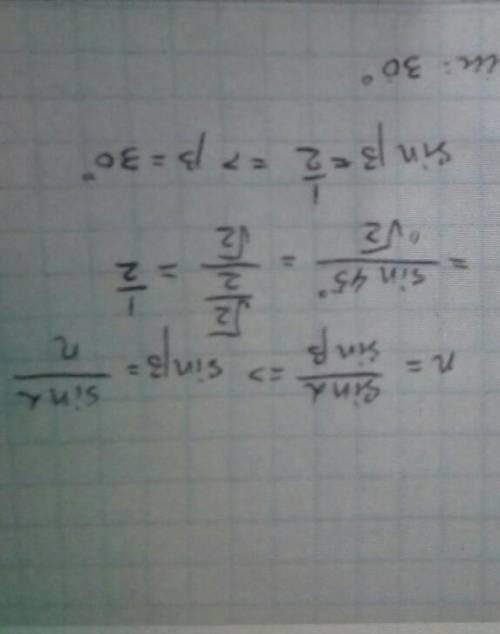 n = sinα / sinβ => sinβ = sinα / n
= sin 45° / √2 = (√2 / 2) / √2 = 1 / 2
sin β = 1 / 2 => β = 30°
: 30°